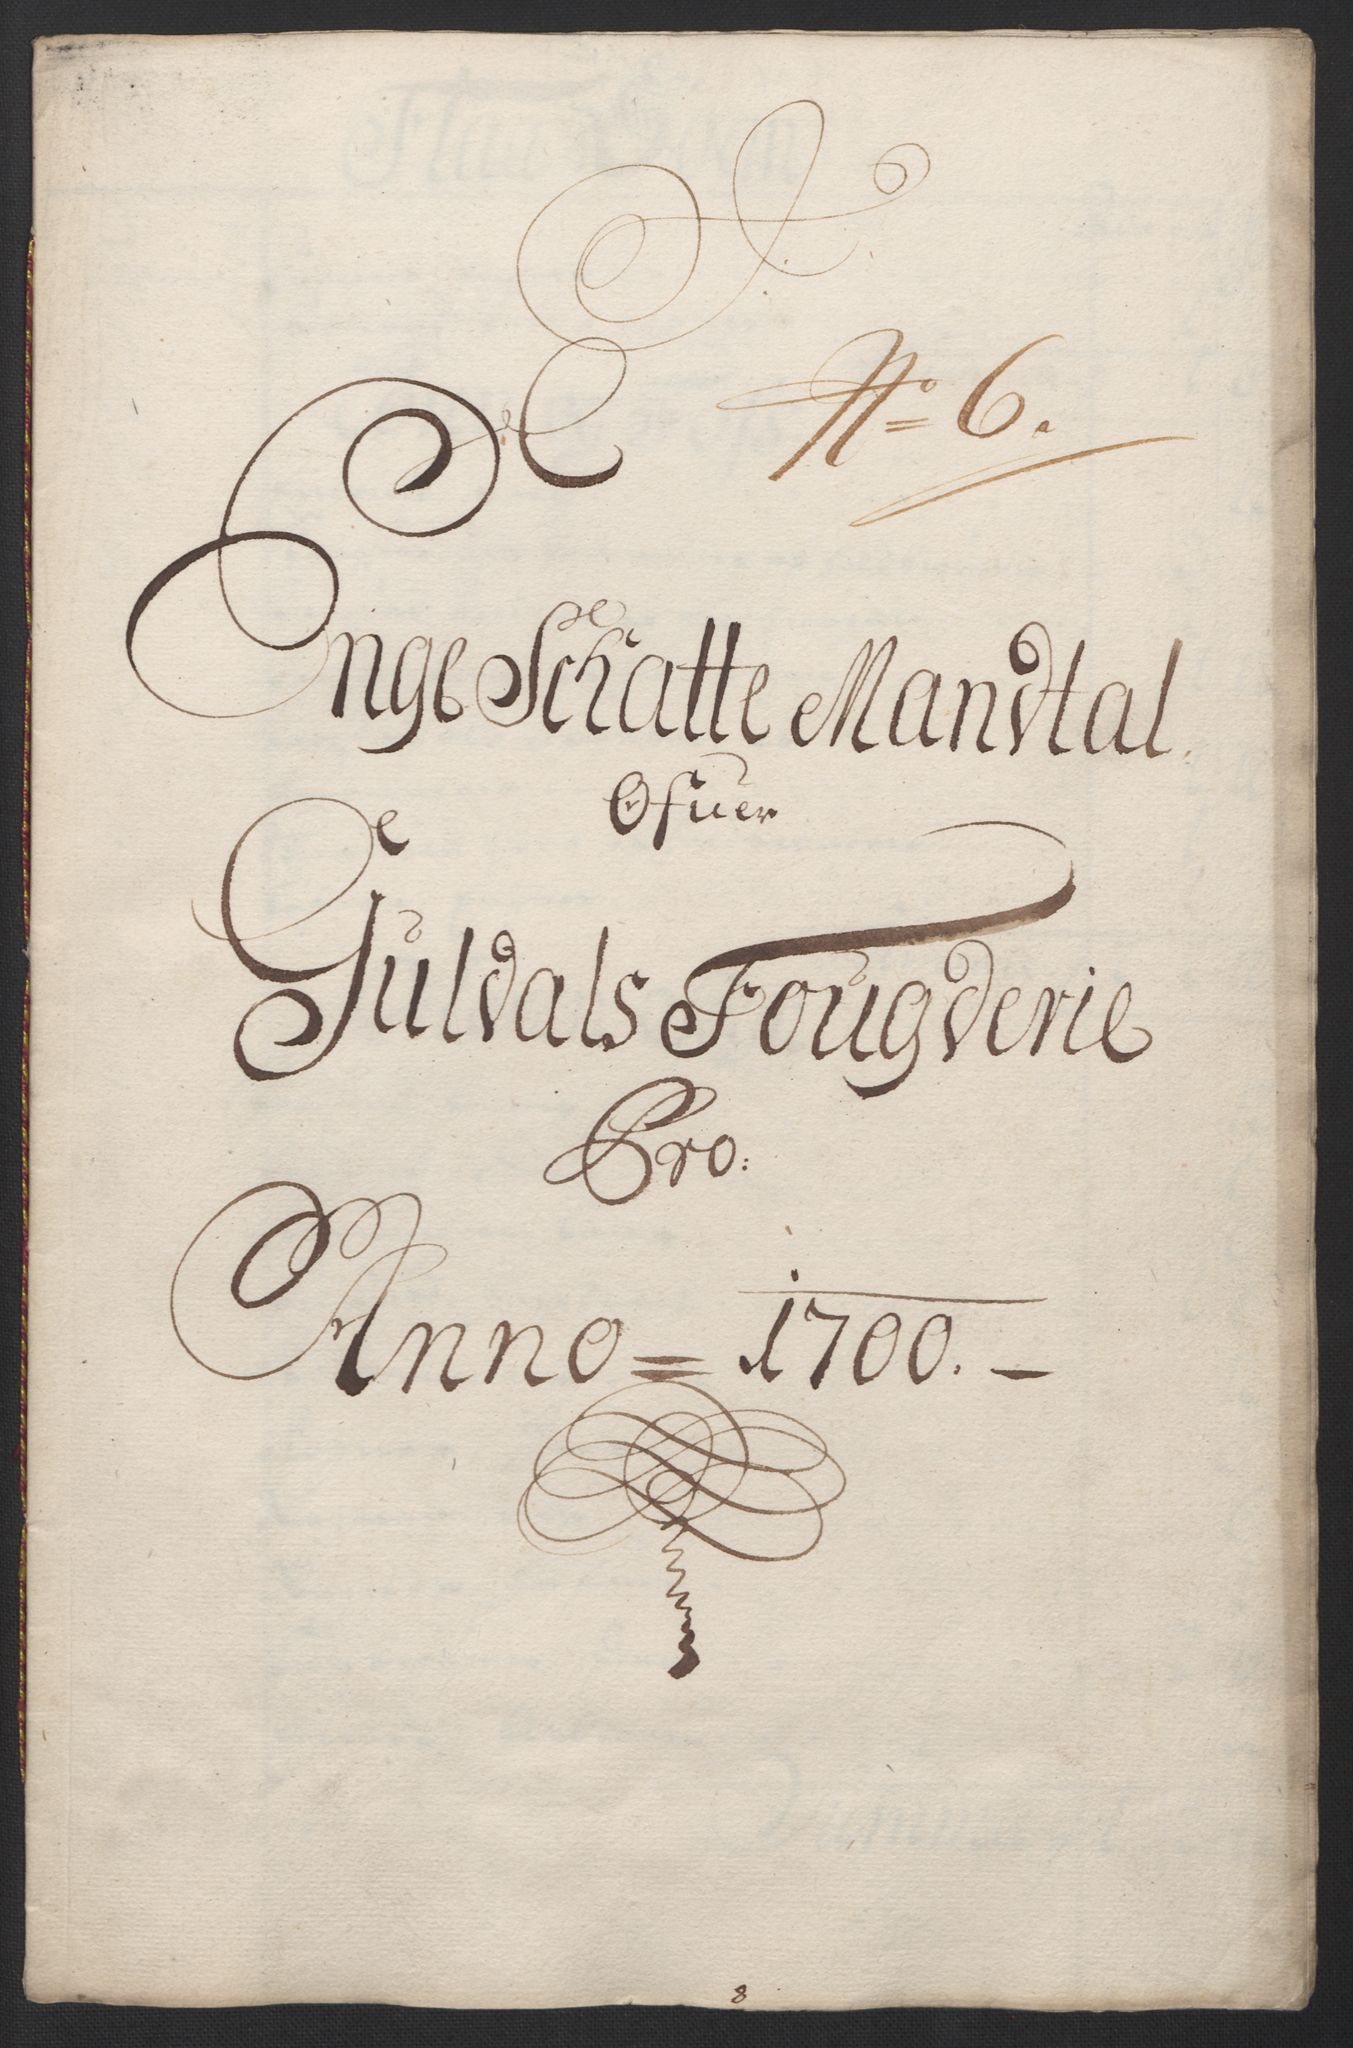 No 6.
Enge Schatte Mandtal.
Ofuer
Guldals Fougderie
Pro:
Anno = 1700. -
8